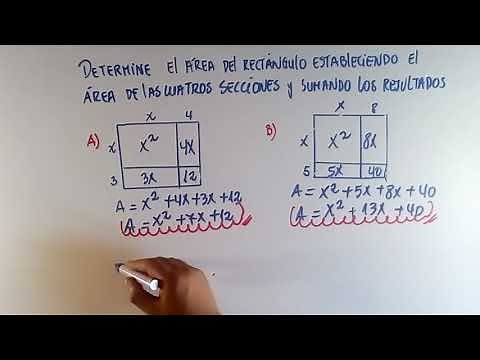 DETERMINE EL ÁREA DEL RECTÁNGULO ESTABLECIENDO EL
ÁREA DE LAS CUATROS SECCIONES y SUMANDO LOS RESULTADOS
A)
x 4
x x² 4x
3 3x 12
A = x² + 4x + 3x + 12
A = x² + 7x + 12
B)
x 8
x x² 8x
5 5x 40
A = x² + 5x + 8x + 40
A = x² + 13x + 40